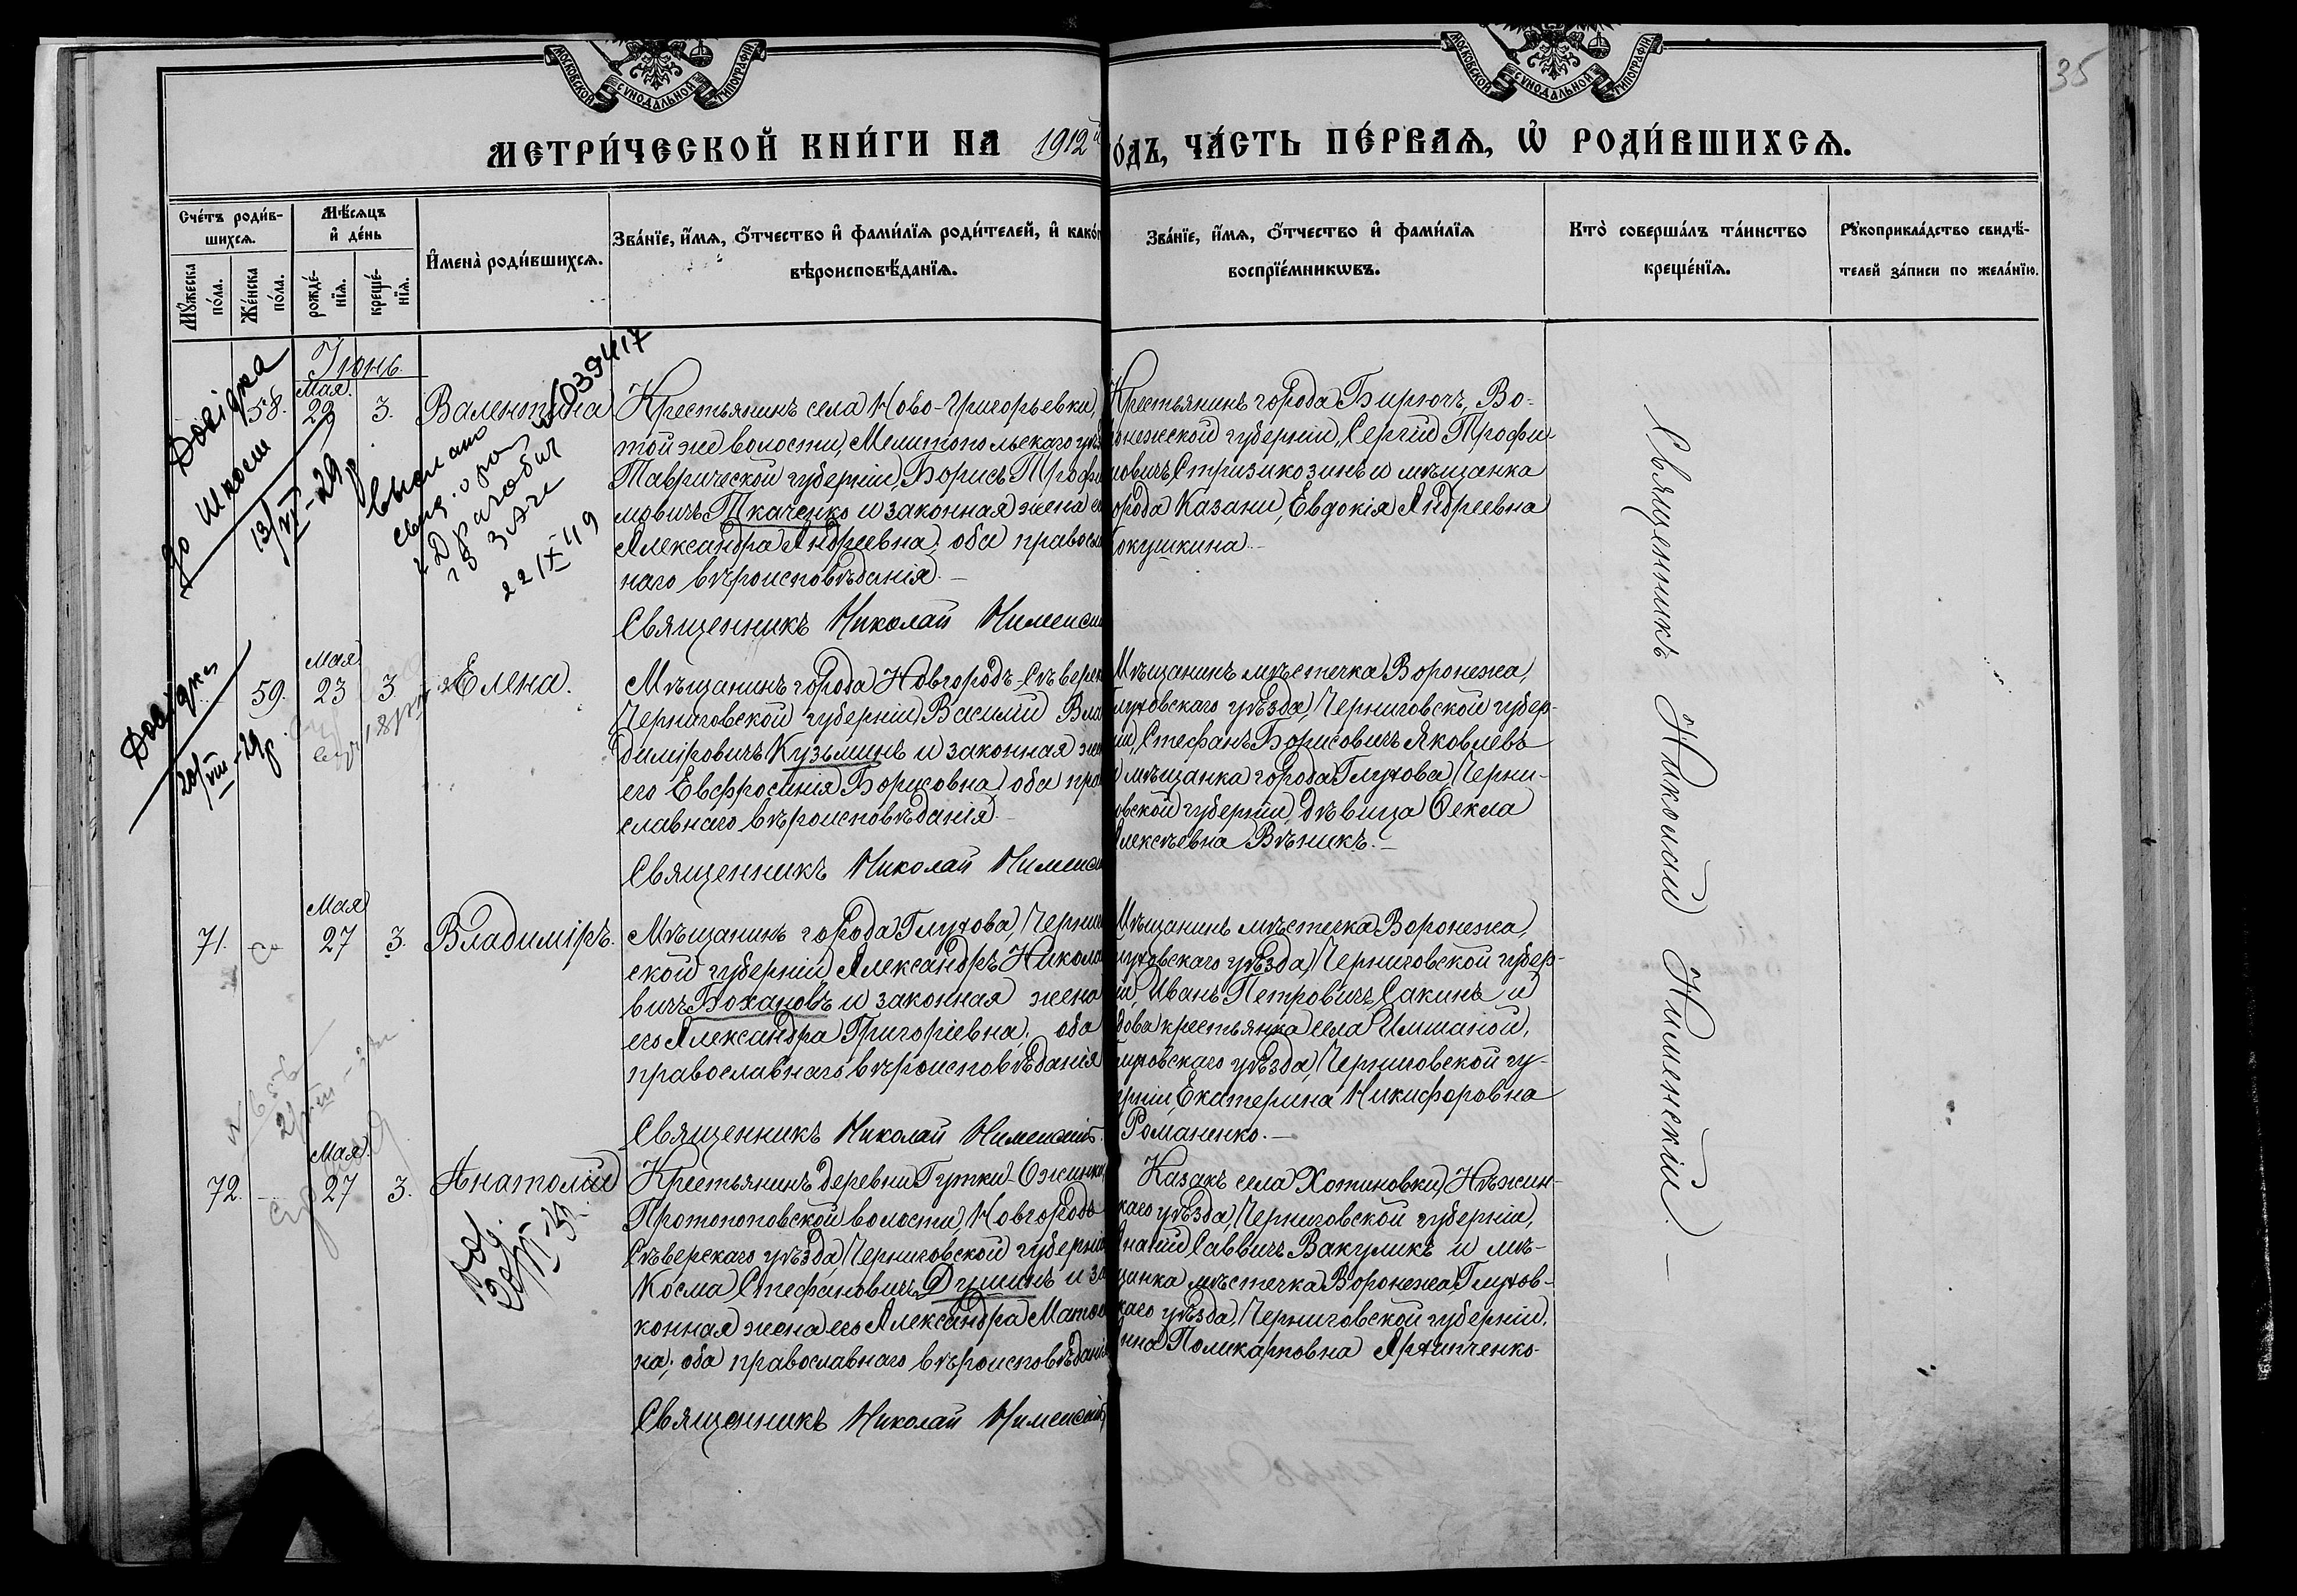 МОСКОВСКОЙ СѴНОДАЛЬНОЙ ТИПОГРАФІИ
МОСКОВСКОЙ СѴНОДАЛЬНОЙ ТИПОГРАФІИ
35
МЕТРИ́ЧЕСКОЙ КНИ́ГИ НА 1912й
О́ДЪ, ЧА́СТЬ ПЕ́РВАѦ, Ѡ҆ РОДИ́ВШИХСѦ.
Сче́тъ роди́в-
шихсѧ.
Мꙋ́жеска
по́ла.
Же́нска
по́ла.
Мѣ́сѧцъ
и҆ де́нь
рожде́-
нїѧ.
креще́-
нїѧ.
И҆мена̀ роди́вшихсѧ.
Зва́нїе, и҆́мѧ, ѻ҆́тчество и҆ фами́лїѧ роди́телей, и҆ како́г
вѣроисповѣ́данїѧ.
Зва́нїе, и҆́мѧ, ѻ҆́тчество и҆ фами́лїѧ
воспрїе́мникѡвъ.
Кто̀ соверша́лъ та́инство
креще́нїѧ.
Рꙋкоприкла́дство свидѣ́-
телей за́писи по жела́нїю.
Іюнь.
Мая
58. 29 3. Валентина
Довідка
до школи
13/VI-29р
выслано
22/X 49
Крестьянинъ села Ново-Григорьевки,
той же волости, Мелитопольскаго уѣз
Таврической губерніи, Борисъ Трофи
мовичъ Ткаченко и законная жена е
Александра Андреевна, оба правосл
наго вѣроисповѣданія.—
Священникъ Николай Нименск
Крестьянинъ города Бирючъ, Во-
ронежской губерніи, Сергій Трофи-
мовичъ Стризикозинъ и мѣщанка
орода Казани, Евдокія Андреевна
окушкина.—
Мая
59. 23 3 Елена.
Довідка
20/VIII-29р
Мѣщанинъ города Новгородъ-Сѣверск
Черниговской губерніи Василій Вла
диміровичъ Кузьминъ и законная же
его Евфросинія Борисовна, оба пра
славнаго вѣроисповѣданія.—
Священникъ Николай Нименск
Мѣщанинъ мѣстечка Воронежа,
Глуховскаго уѣзда, Черниговской губер-
іи, Стефанъ Борисовичъ Яковлевъ
и мѣщанка города Глухова, Черни-
овской губерніи, дѣвица Ѳекла
Алексѣевна Вѣникъ.—
Мая
71. 27 3. Владиміръ.
Мѣщанинъ города Глухова, Черни
ской губерніи Александръ Никола
вичъ Бохановъ и законная жена
его Александра Григоріевна, оба
православнаго вѣроисповѣданія
Священникъ Николай Нименскій.
Мѣщанинъ мѣстечка Воронежа,
луховскаго уѣзда, Черниговской губер-
іи, Иванъ Петровичъ Сакинъ и
дова крестьянка села Имшаной,
Глуховскаго уѣзда, Черниговской гу-
ерніи, Екатерина Никифоровна
Романенко.—
Мая
72. 27 3. Анатолій
Крестьянинъ деревни Гутки-Ожинки
Протопоповской волости, Новгородъ
Сѣверскаго уѣзда, Черниговской губерн
Косма Стефановичъ Думинъ и за
конная жена его Александра Матов
на, оба православнаго вѣроисповѣдані
Священникъ Николай Нименскій
Казакъ села Хотиновки, Нѣжин-
скаго уѣзда, Черниговской губерніи,
Игнатій Саввичъ Вакуликъ и мѣ-
щанка мѣстечка Воронежа, Глухов-
скаго уѣзда, Черниговской губерніи,
нна Поликарповна Архипченко
Священникъ Николай Нименскій.—